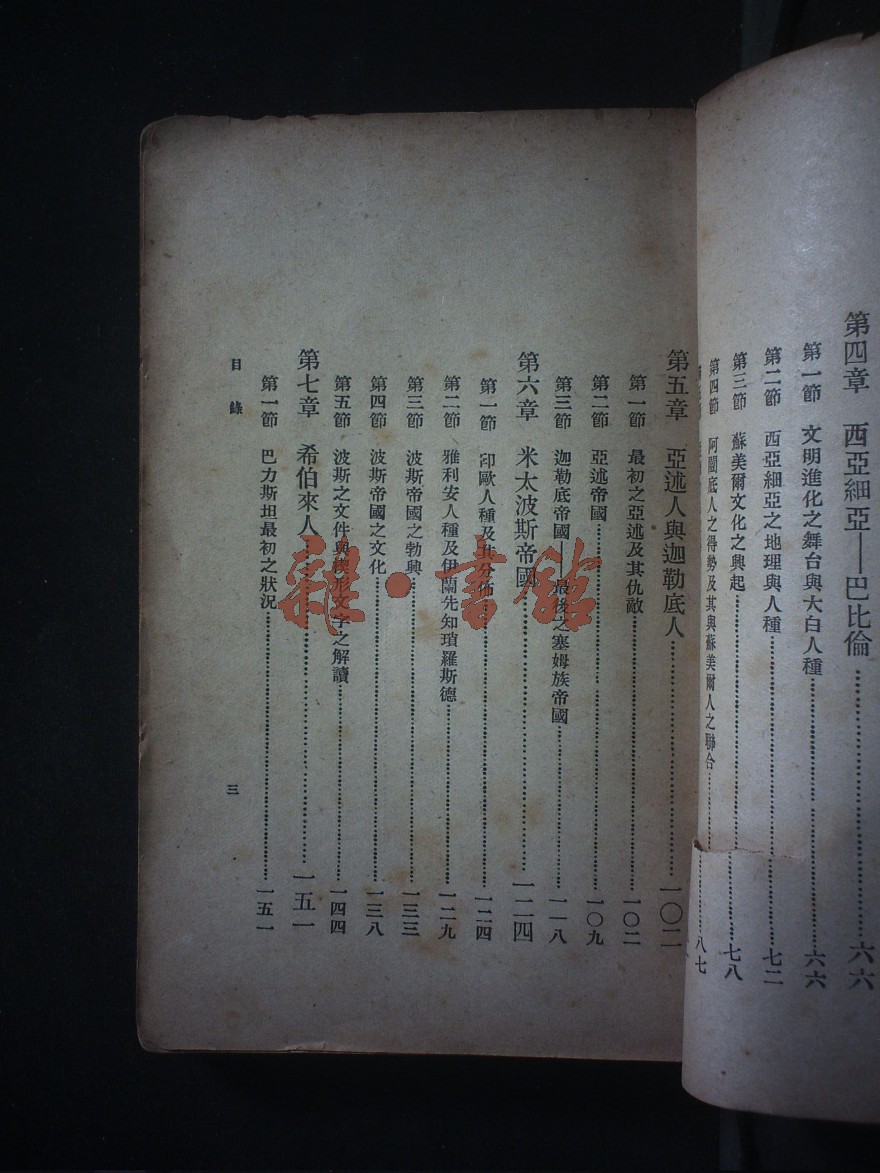 第四章　西亞細亞——巴比倫……六六
第一節　文明進化之舞台與大白人種……六六
第二節　西亞細亞之地理與人種……七二
第三節　蘇美爾文化之興起……七八
第四節　阿闍底人之得勢及其與蘇美爾人之聯合……八七
第五章　亞述人與迦勒底人……一〇二
第一節　最初之亞述及其仇敵……一〇二
第二節　亞述帝國……一〇九
第三節　迦勒底帝國——最後之塞姆族帝國……一一八
第六章　米太波斯帝國……一二四
第一節　印歐人種及其分佈……一二四
第二節　雅利安人種及伊蘭先知瑣羅斯德……一二九
第三節　波斯帝國之勃興……一三三
第四節　波斯帝國之文化……一三八
第五節　波斯之文件與楔形文字之解讀……一四四
第七章　希伯來人……一五一
第一節　巴力斯坦最初之狀況……一五一
目錄
三
雜·書館